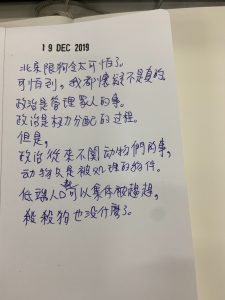 19 DEC 2019
北京限狗令太可怕了。
可怕到，我都懷疑不是真的
政治是管理眾人的事。
政治是权力分配的过程。
但是，
政治從來不關动物們的事，
动物只是被处理的物件。
低端人口都可以集体被趨趕，
殺殺狗也没什麼了。